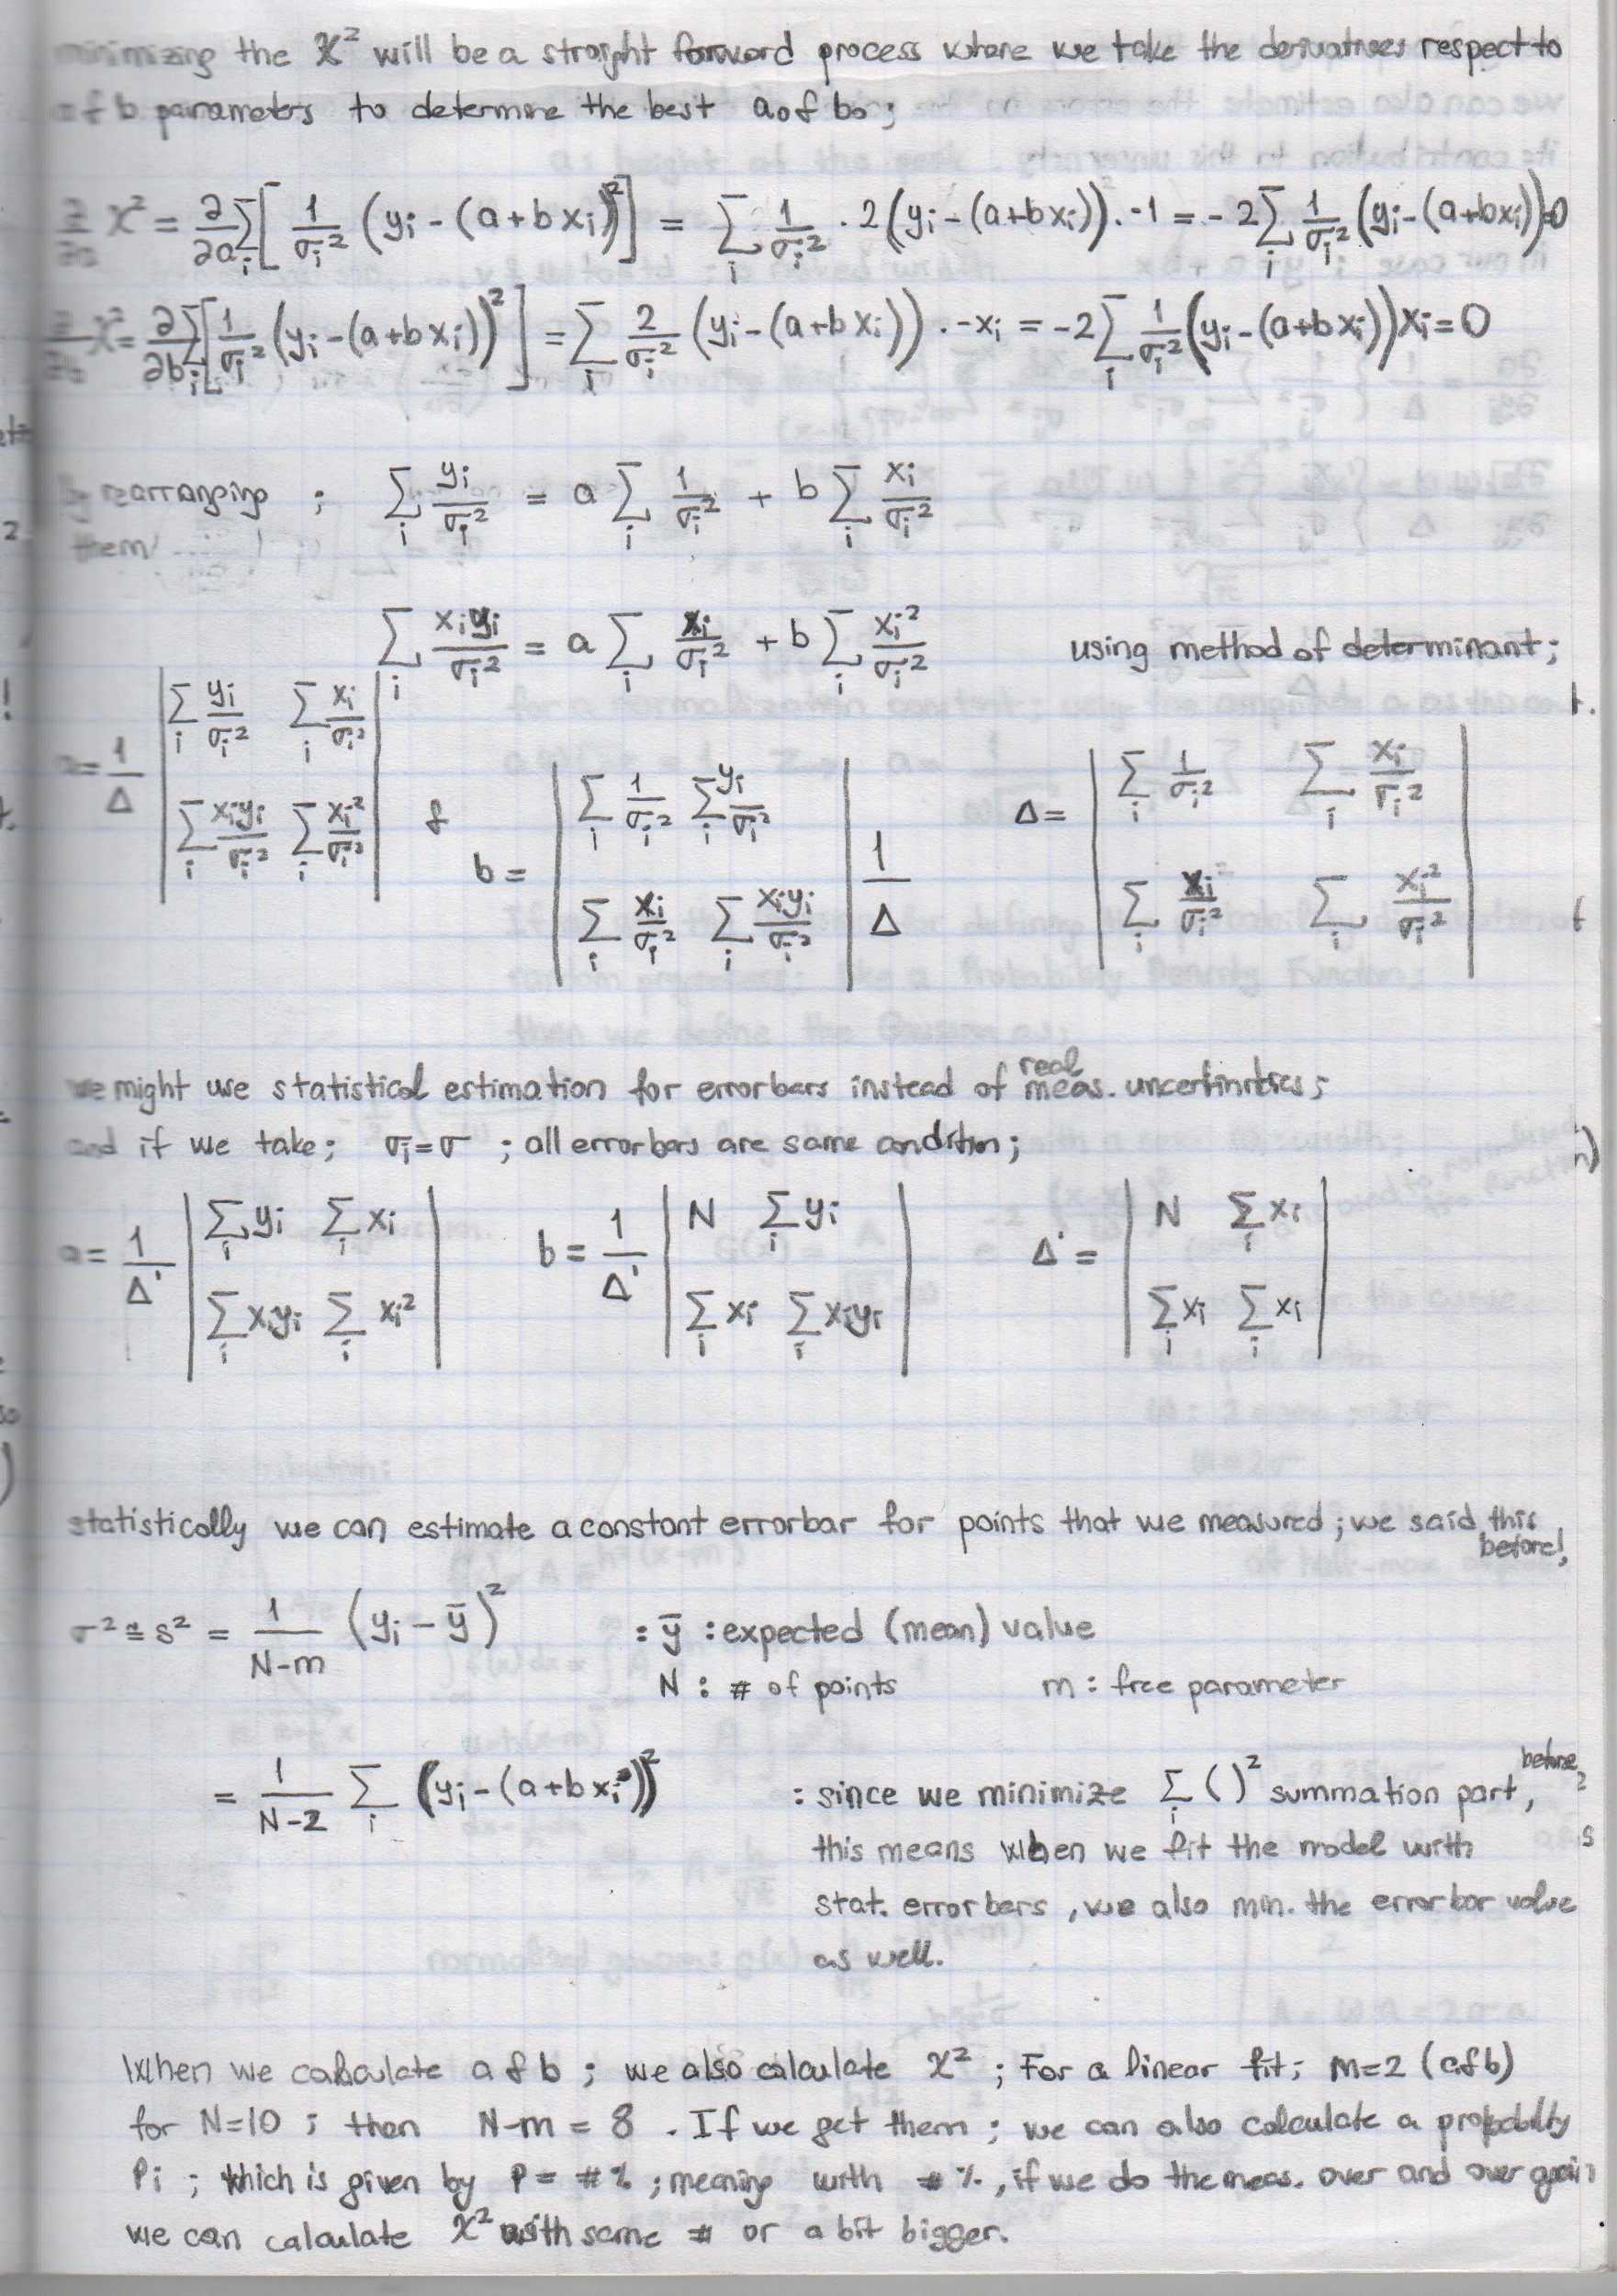 minimizing the χ² will be a straight forward process where we take the derivatives respect to
a & b parameters to determine the best a₀ & b₀;
∂/∂a χ² = ∂/∂a Σᵢ [ 1/σᵢ² (yᵢ - (a + b xᵢ))² ] = Σᵢ 1/σᵢ² · 2(yᵢ - (a+bxᵢ)) · -1 = -2 Σᵢ 1/σᵢ² (yᵢ - (a+bxᵢ)) = 0
∂/∂b χ² = ∂/∂b Σᵢ [ 1/σᵢ² (yᵢ - (a+bxᵢ))² ] = Σᵢ 2/σᵢ² (yᵢ - (a+bxᵢ)) · -xᵢ = -2 Σᵢ 1/σᵢ² (yᵢ - (a+bxᵢ)) xᵢ = 0
by rearranging ; Σᵢ yᵢ/σᵢ² = a Σᵢ 1/σᵢ² + b Σᵢ xᵢ/σᵢ²
them
Σᵢ xᵢyᵢ/σᵢ² = a Σᵢ xᵢ/σᵢ² + b Σᵢ xᵢ²/σᵢ² using method of determinant;
a = 1/Δ | Σᵢ yᵢ/σᵢ² Σᵢ xᵢ/σᵢ² |
| Σᵢ xᵢyᵢ/σᵢ² Σᵢ xᵢ²/σᵢ² | &
b = | Σᵢ 1/σᵢ² Σᵢ yᵢ/σᵢ² |
| Σᵢ xᵢ/σᵢ² Σᵢ xᵢyᵢ/σᵢ² | 1/Δ
Δ = | Σᵢ 1/σᵢ² Σᵢ xᵢ/σᵢ² |
| Σᵢ xᵢ/σᵢ² Σᵢ xᵢ²/σᵢ² |
we might use statistical estimation for errorbars instead of real meas. uncertinities;
and if we take; σᵢ=σ ; all errorbars are same condition;
a = 1/Δ' | Σᵢ yᵢ Σᵢ xᵢ | b = 1/Δ' | N Σᵢ yᵢ | Δ' = | N Σᵢ xᵢ |
| Σᵢ xᵢyᵢ Σᵢ xᵢ² | | Σᵢ xᵢ Σᵢ xᵢyᵢ | | Σᵢ xᵢ Σᵢ xᵢ |
statistically we can estimate a constant errorbar for points that we measured; we said this
before!
σ² ≅ s² = 1/(N-m) (yᵢ - ȳ)² : ȳ : expected (mean) value
N : # of points m : free parameter
= 1/(N-2) Σᵢ (yᵢ - (a+bxᵢ))² : since we minimize Σᵢ ( )² summation part before,
this means when we fit the model with
stat. errorbers, we also min. the errorbar value
as well.
When we calculate a & b ; we also calculate χ² ; For a linear fit; m=2 (a&b)
for N=10 ; then N-m = 8 . If we get them ; we can also calculate a probability
Pi ; which is given by P = # % ; meaning with # %, if we do the meas. over and over again
we can calculate χ² with same # or a bit bigger.